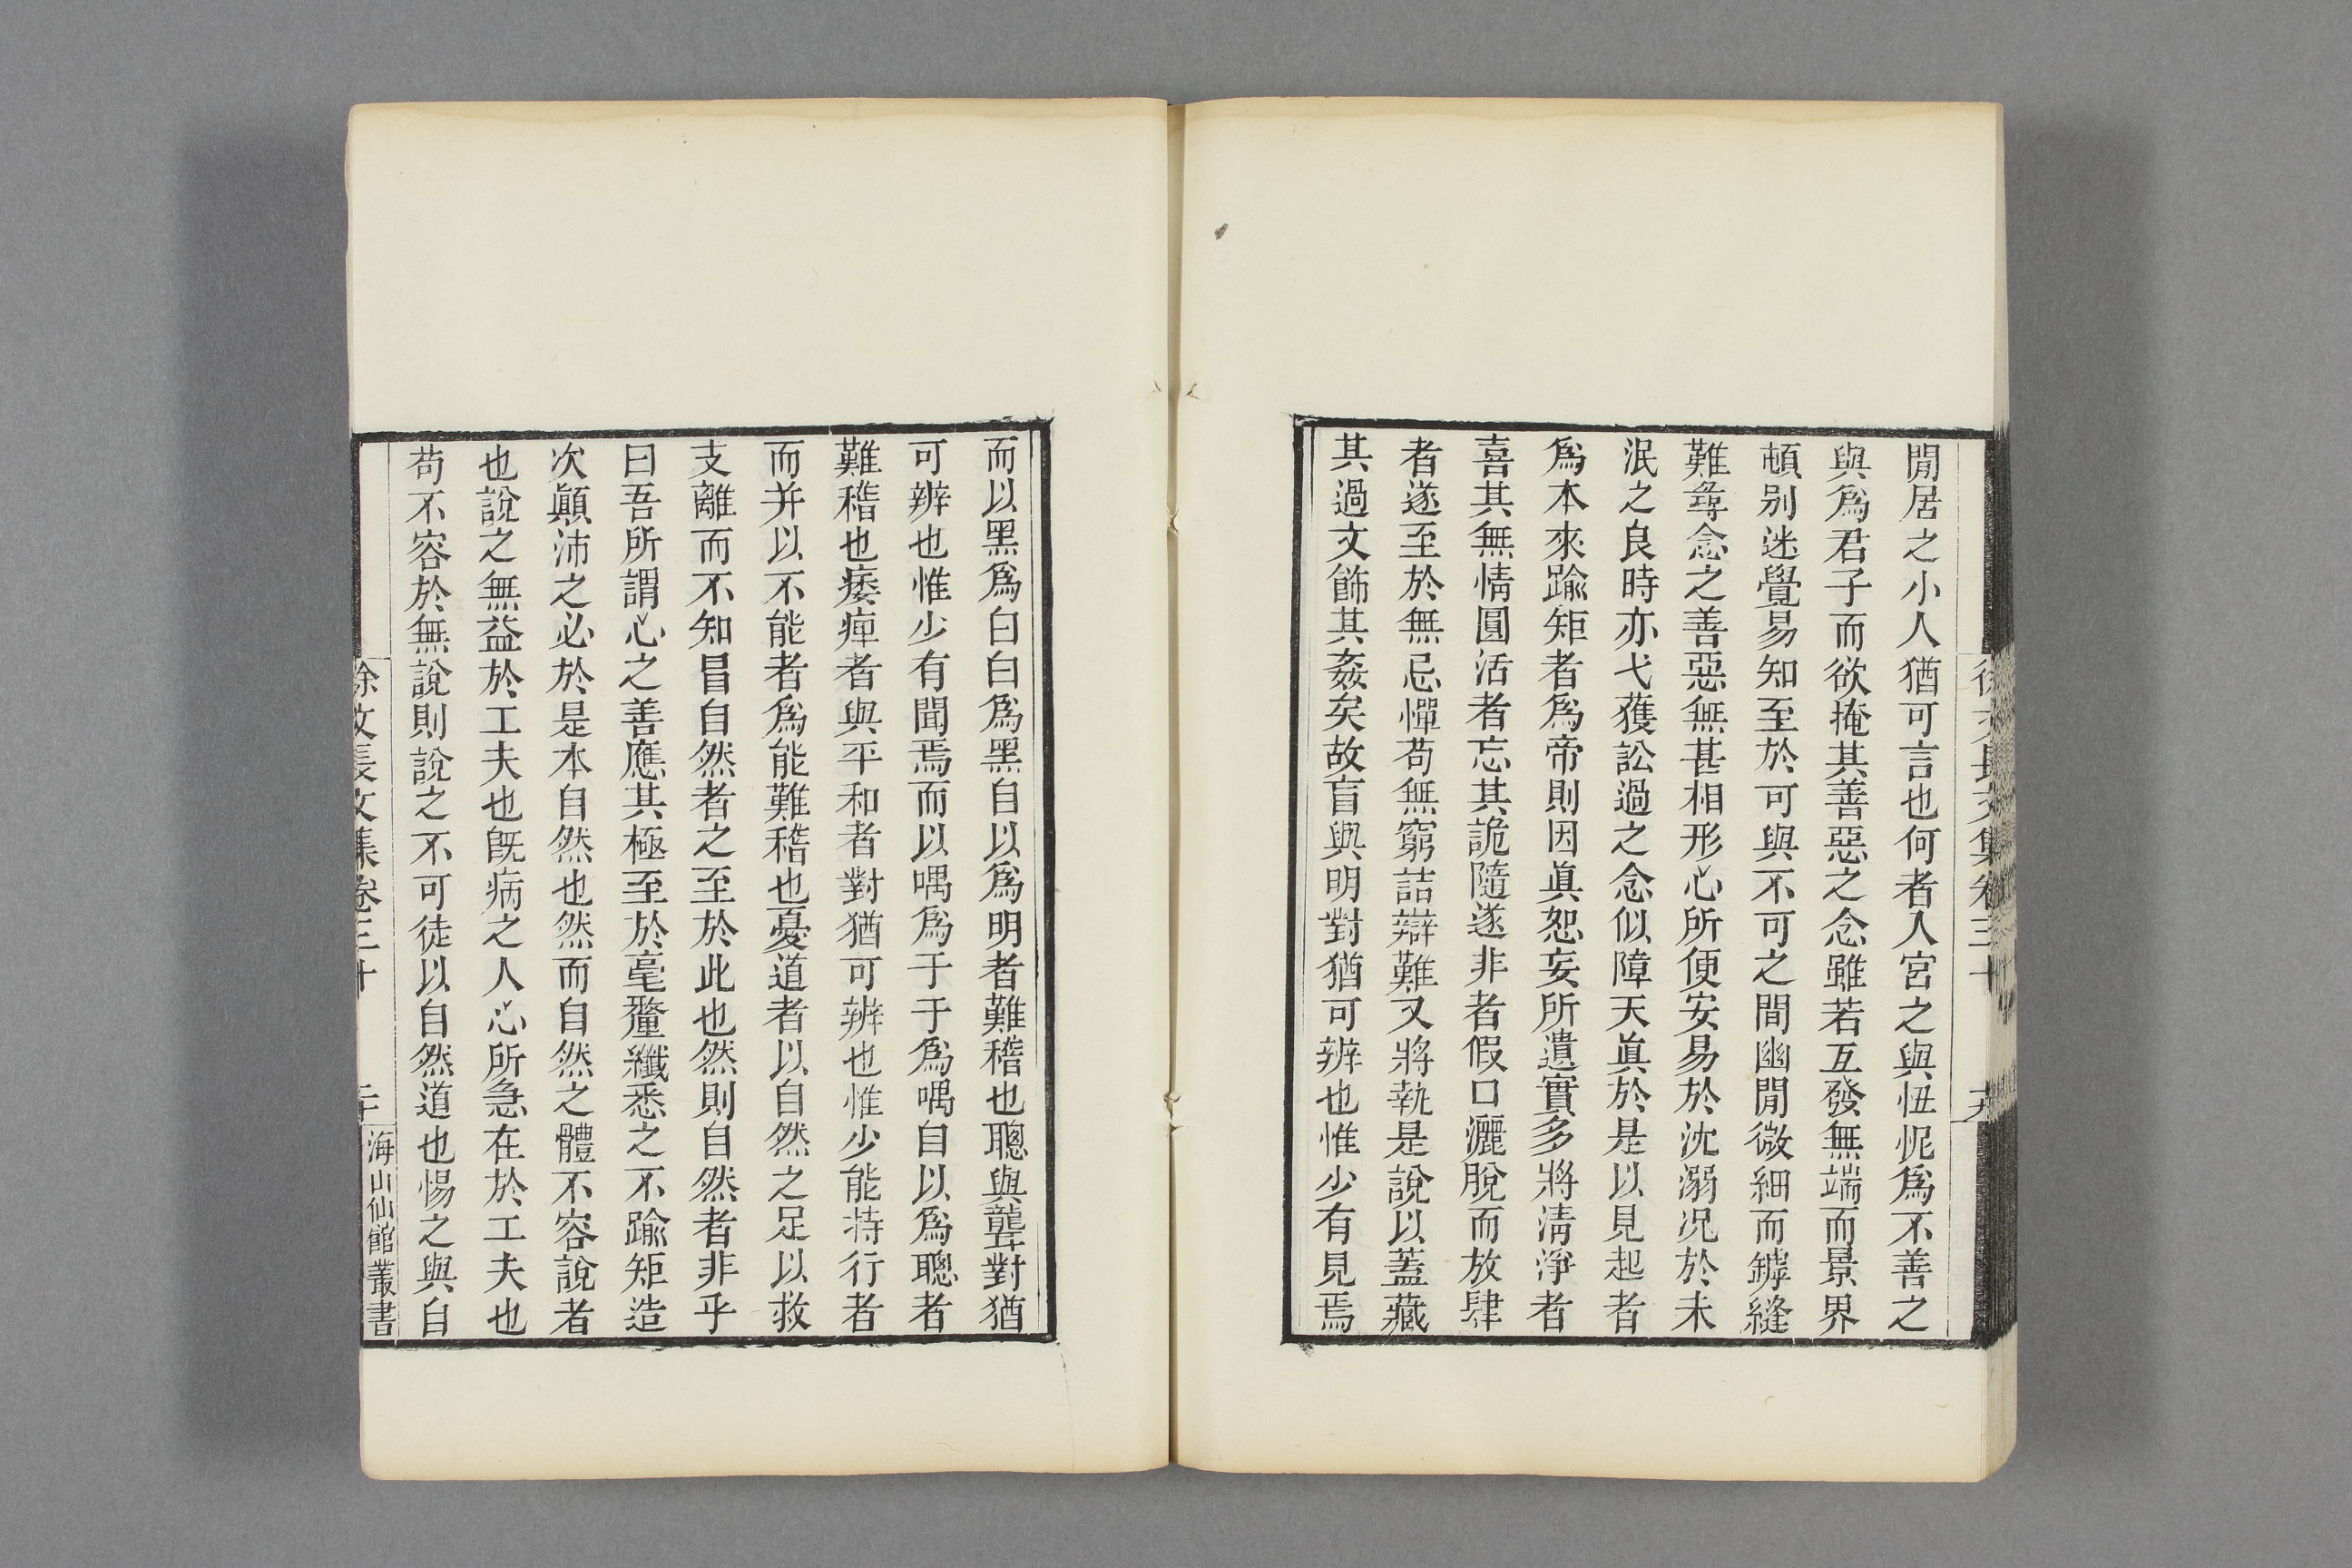 閒居之小人猶可言也何者人宮之與忸怩爲不善之
與爲君子而欲掩其善惡之念雖若互發無端而景界
頓别迷覺易知至於可與不可之間幽閒微細而罅縫
難尋念之善惡無甚相形心所便安易於沈溺况於未
泯之良時亦弋獲訟過之念似障天眞於是以見起者
爲本來踰矩者爲帝則因眞恕妄所遺實多將淸淨者
喜其無情圓活者忘其詭隨遂非者假口灑脫而放肆
者遂至於無忌憚苟無窮詰辯難又將執是說以蓋藏
其過文飾其姦矣故盲與明對猶可辨也惟少有見焉
而以黑爲白白爲黑自以爲明者難稽也聰與聾對猶
可辨也惟少有聞焉而以喁爲于于爲喁自以爲聰者
難稽也痿痺者與平和者對猶可辨也惟少能持行者
而并以不能者爲能難稽也憂道者以自然之足以救
支離而不知冒自然者之至於此也然則自然者非乎
曰吾所謂心之善應其極至於毫釐纖悉之不踰矩造
次顚沛之必於是本自然也然而自然之體不容說者
也說之無益於工夫也旣病之人心所急在於工夫也
苟不容於無說則說之不可徒以自然道也惕之與自
徐文長文集卷三十
海山仙館叢書